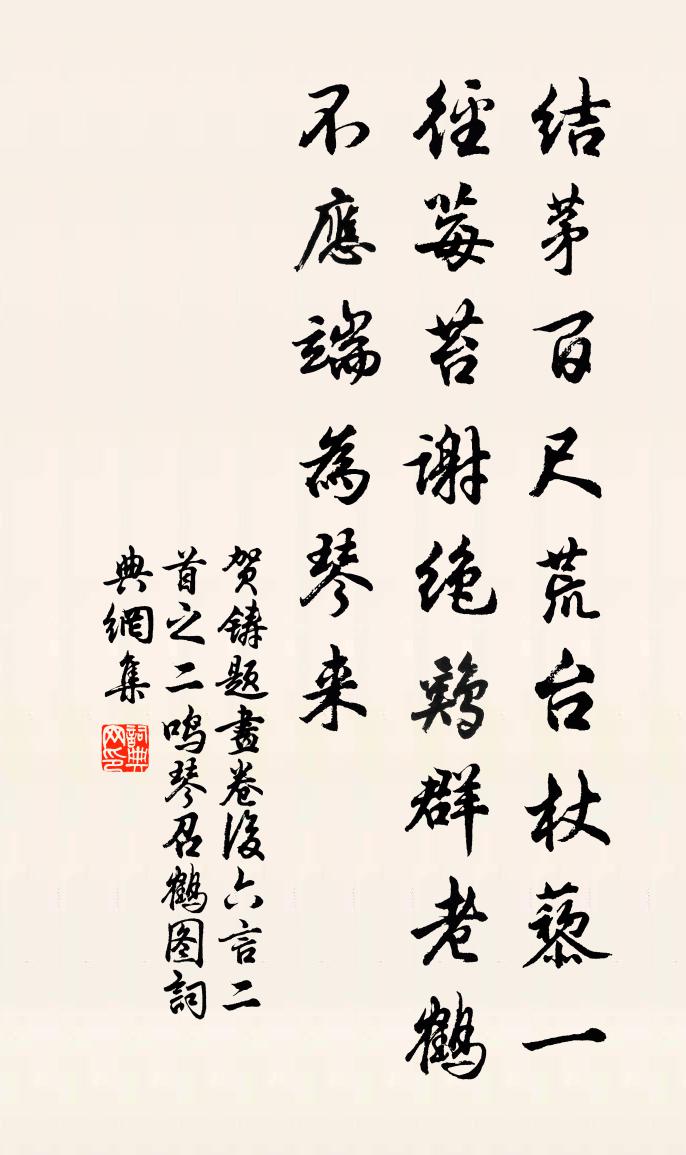 结茅百尺荒台杖藜一
径莓苔谢绝鸡群老鹤
不應端為琴来
贺鑄題畫卷後六言二
首之二鸣琴召鹤图詞
典網集
詞典网印